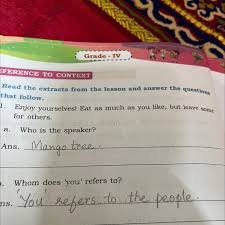 Grade - IV
EFERENCE TO CONTEXT
Read the extracts from the lesson and answer the questions
that follow.
1. Enjoy yourselves! Eat as much as you like, but leave some
for others.
a. Who is the speaker?
Ans. Mango tree.
b. Whom does 'you' refers to?
ns. 'You' refers to the people.